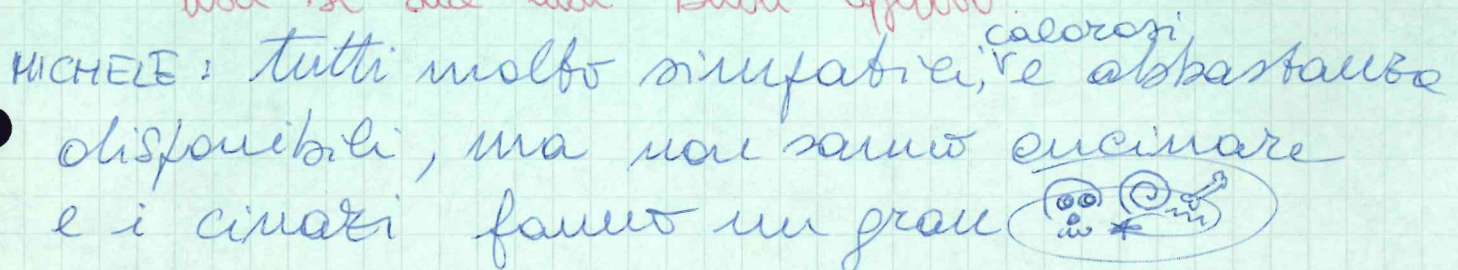 MICHELE: tutti molto simpatici, calorosi e abbastanza
disponibili, ma non sanno cucinare
e i fanno un gran